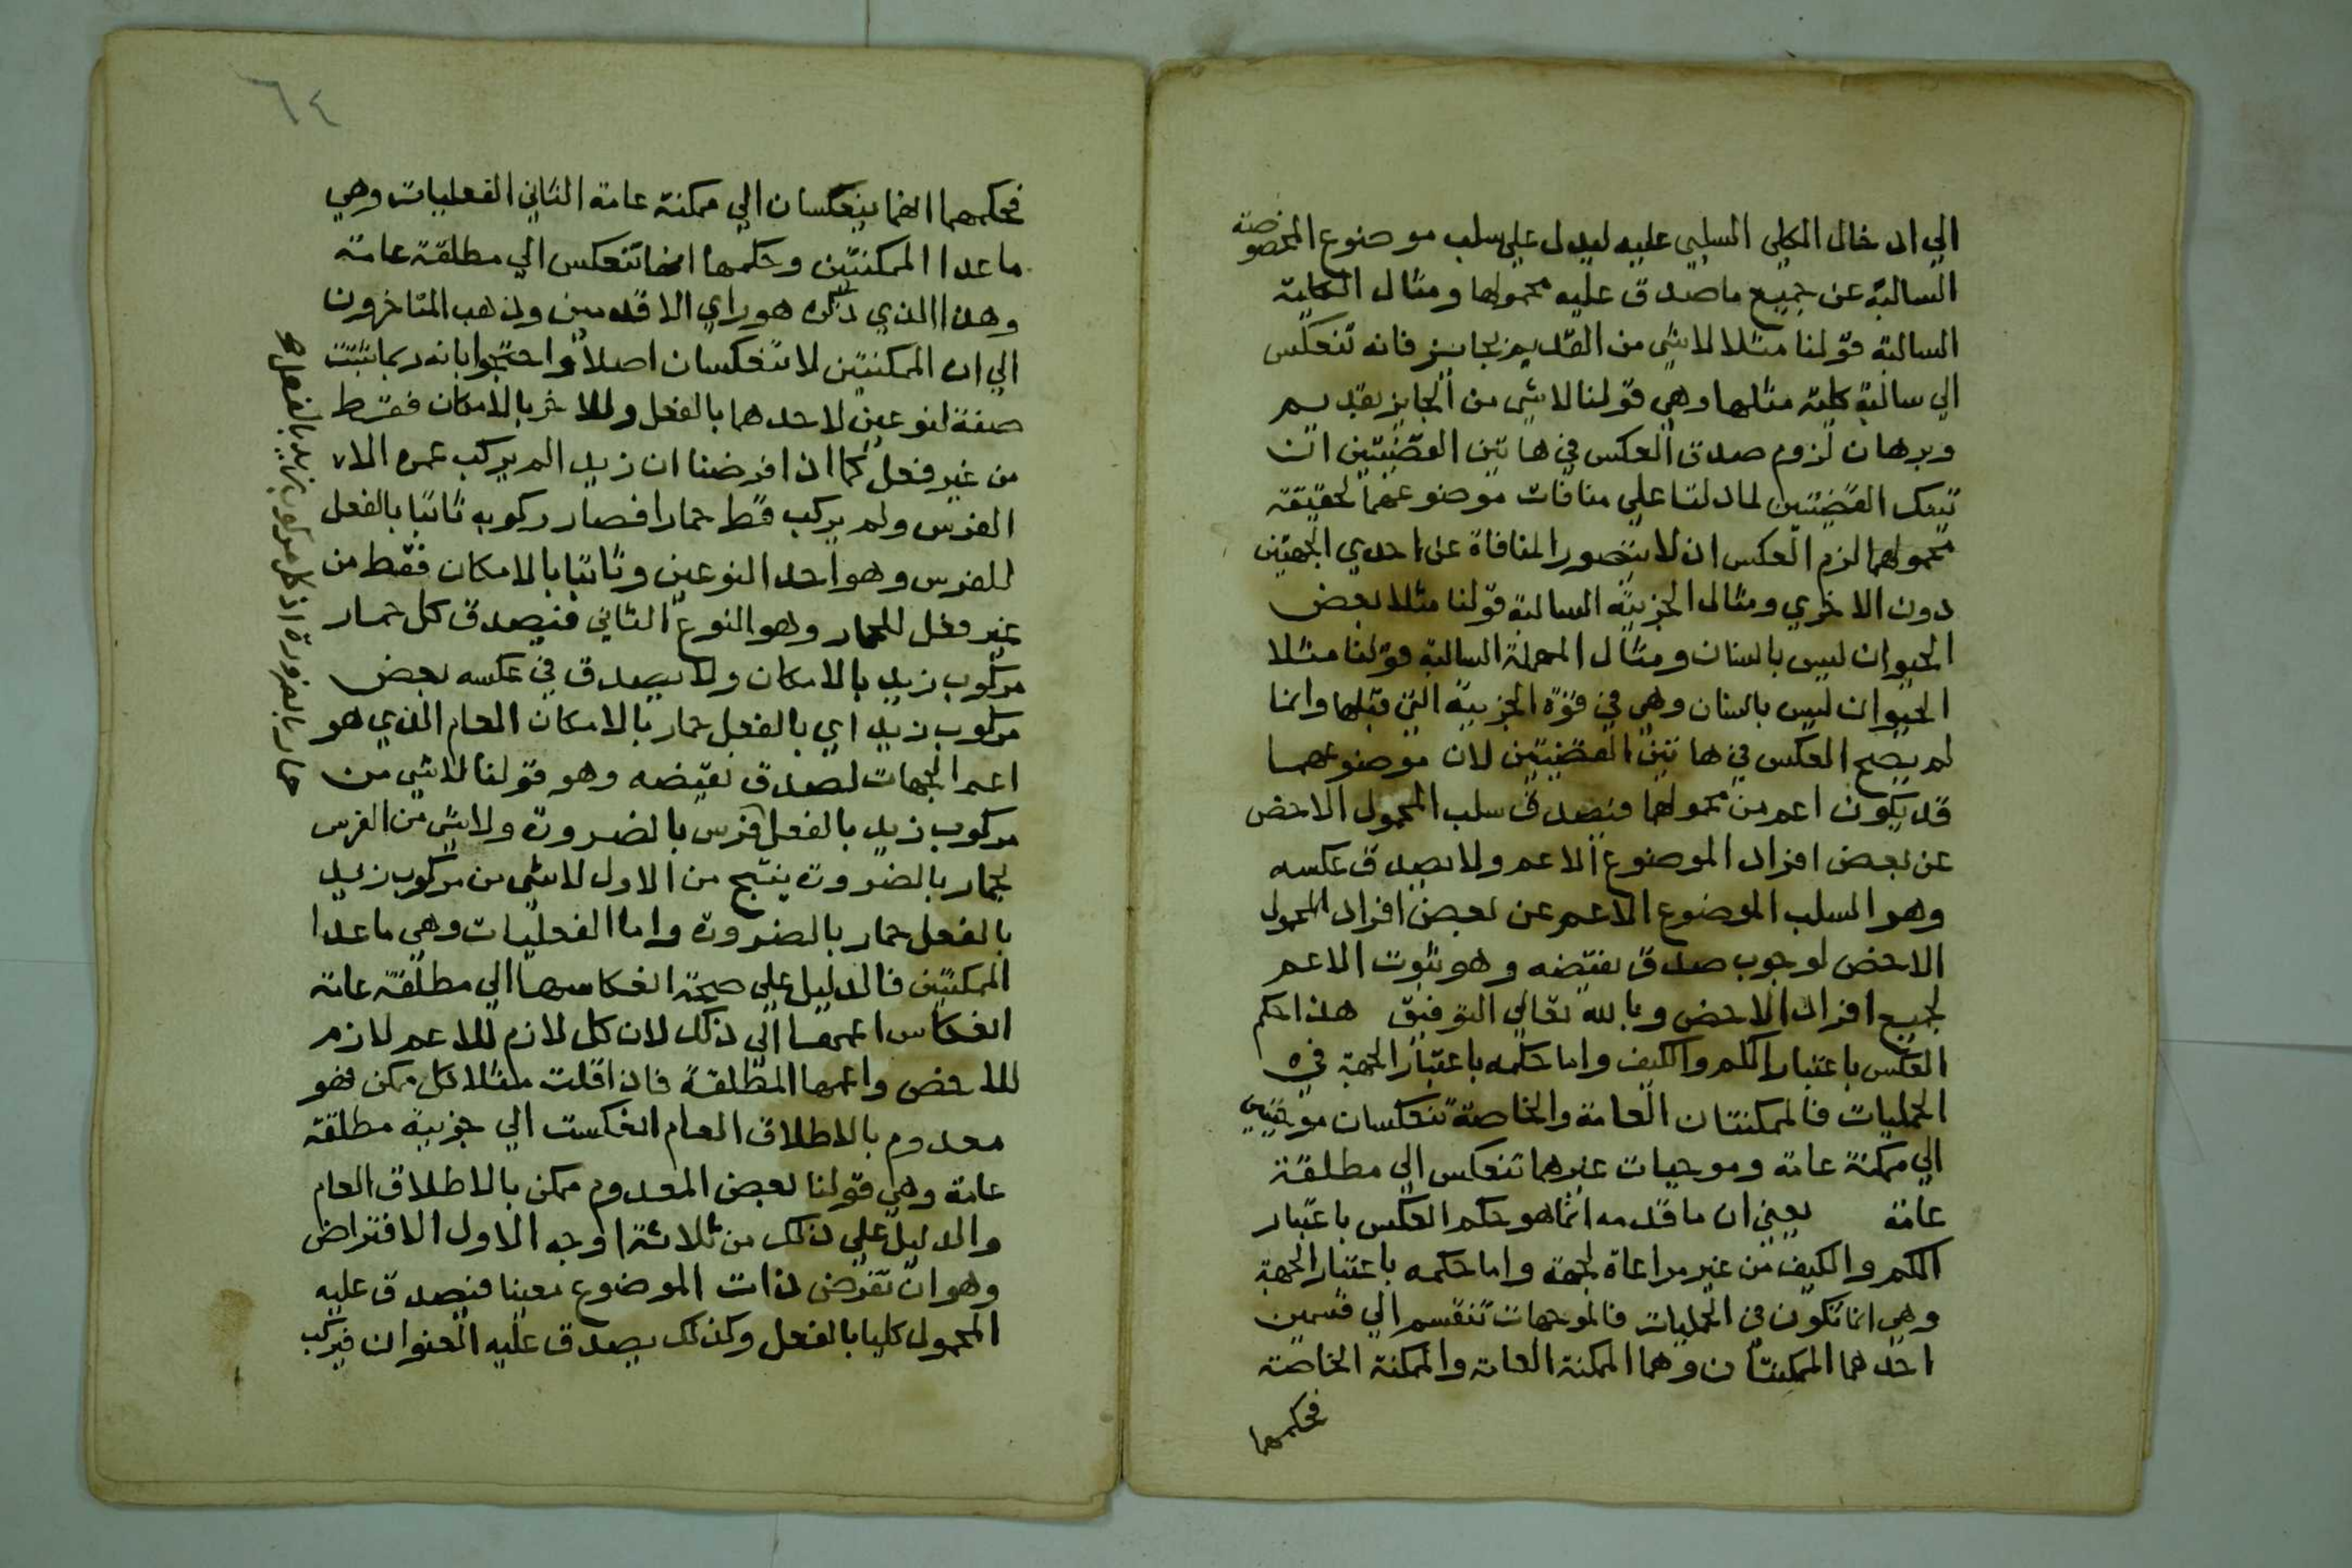 الي ادخال الكلي السلبي عليه ليدل علي سلب موضوع المخصوصة
السالبة عن جميع ماصدق عليه محمولها ومثال الكلية
السالبة قولنا مثلا لاشي من القديم بجايز فانه تنعكس
الي سالبة كلية مثلها وهي قولنا لاشي من الجايز بقديم
وبرهان لزوم صدق العكس في هاتين القضيتين ان
تينك القضيتين لمادلتا علي منافات موضوعهما لحقيقة
محمولهما لزم العكس اذ لا يتصور المنافاة عن احدي الجهتين
دون الاخري ومثال الجزيية السالبة قولنا مثلا بعض
الحيوان ليس بانسان ومثال المهملة السالبة قولنا مثلا
الحيوان ليس بانسان وهي في قوة الجزيية التي قبلها وانما
لم يصح العكس في هاتين القضيتين لان موضوعهما
قد يكون اعم من محمولهما فيصدق سلب المحمول الاخص
عن بعض افراد الموضوع الاعم ولا يصدق عكسه
وهو السلب الموضوع الاعم عن بعض افراد المحمول
الاخص لوجوب صدق نقيضه وهو ثبوت الاعم
لجميع افراد الاخص وبالله تعالي التوفيق هذا حكم
العكس باعتبار الكم والكيف واما حكمه باعتبار الجهة في
الحمليات فالممكنتان العامة والخاصة تنعكسان موجبتين
الي ممكنة عامة وموجبات غيرهما تنعكس الي مطلقة
عامة يعني ان ما قدمه انما هو حكم العكس باعتبار
الكم والكيف من غير مراعاة لجهة واما حكمه باعتبار الجهة
وهي انما تكون في الحمليات فالموجهات تنقسم الي قسمين
احدهما الممكنتان وهما الممكنة العامة والممكنة الخاصة
فحكمهما
٦٤
فحكمهما انهما ينعكسان الي ممكنة عامة الثاني الفعليات وهي
ماعدا الممكنتين وحكمها انها تنعكس الي مطلقة عامة
وهذا الذي ذكره هو راي الاقدمين وذهب المتاخرون
الي ان الممكنتين لا تنعكسان اصلا واحتجوا بانه ربما تثبت
صفة لنوعين لاحدهما بالفعل وللاخر بالامكان فقط
من غير فعل كما اذا فرضنا ان زيد الم يركب عمره الا
الفرس ولم يركب قط حمارا فصار ركوبه ثابتا بالفعل
للفرس وهو احد النوعين وثابتا بالامكان فقط من
غير فعل للحمار وهو النوع الثاني فيصدق كل حمار
مركوب زيد بالامكان ولا يصدق في عكسه بعض
مركوب زيد اي بالفعل حمار بالامكان العام الذي هو
اعم الجهات لصدق نقيضه وهو قولنا لاشي من
مركوب زيد بالفعل فرس بالضرورة ولاشي من الفرس
بحمار بالضرورة ينتج من الاول لاشي من مركوب زيد
بالفعل حمار بالضرورة واما الفعليات وهي ماعدا
الممكنتين فالدليل علي صحة انعكاسها الي مطلقة عامة
انعكاس اعمها الي ذلك لان كل لازم للاعم لازم
للاخص واعمها المطلقة فاذا قلت مثلا كل ممكن فهو
معدوم بالاطلاق العام انعكست الي جزيية مطلقة
عامة وهي قولنا بعض المعدوم ممكن بالاطلاق العام
والدليل علي ذلك من ثلاثة اوجه الاول الافتراض
وهو ان تفرض ذات الموضوع معينا فيصدق عليه
المحمول كليا بالفعل وكذلك يصدق عليه العنوان فيركب
حمار بالضرورة اذ كل مركوب زيد بالفعل